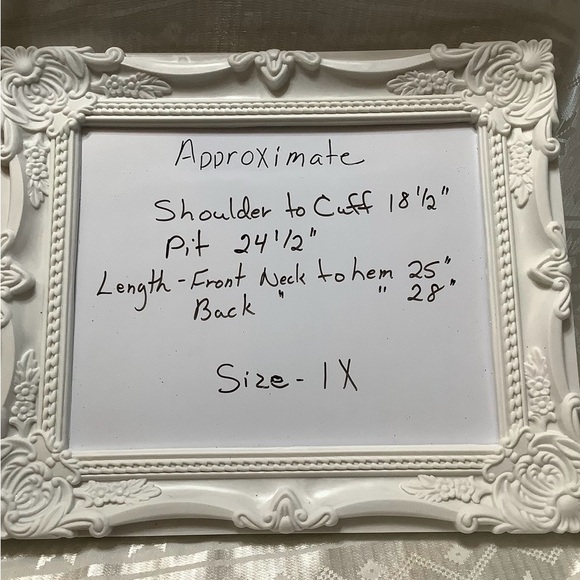 Approximate
Shoulder to Cuff 18 1/2"
Pit 24 1/2"
Length - Front Neck to hem 25"
Back " " 28"
Size - 1X